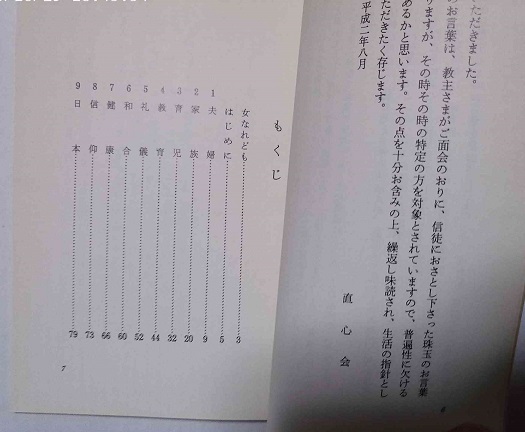 ただきました。
のお言葉は、教主さまがご面会のおりに、信徒におさとし下さった珠玉のお言葉
りますが、その時その時の特定の方を対象とされていますので、普遍性に欠ける
あるかと思います。その点を十分お含みの上、繰返し味読され、生活の指針とし
ただきたく存じます。
平成二年八月
直心会
6
もくじ
女なれども……………3
はじめに……………5
1 夫婦……………9
2 家族……………20
3 育児……………32
4 教育……………44
5 礼儀……………52
6 和合……………60
7 健康……………66
8 信仰……………73
9 日本……………79
7